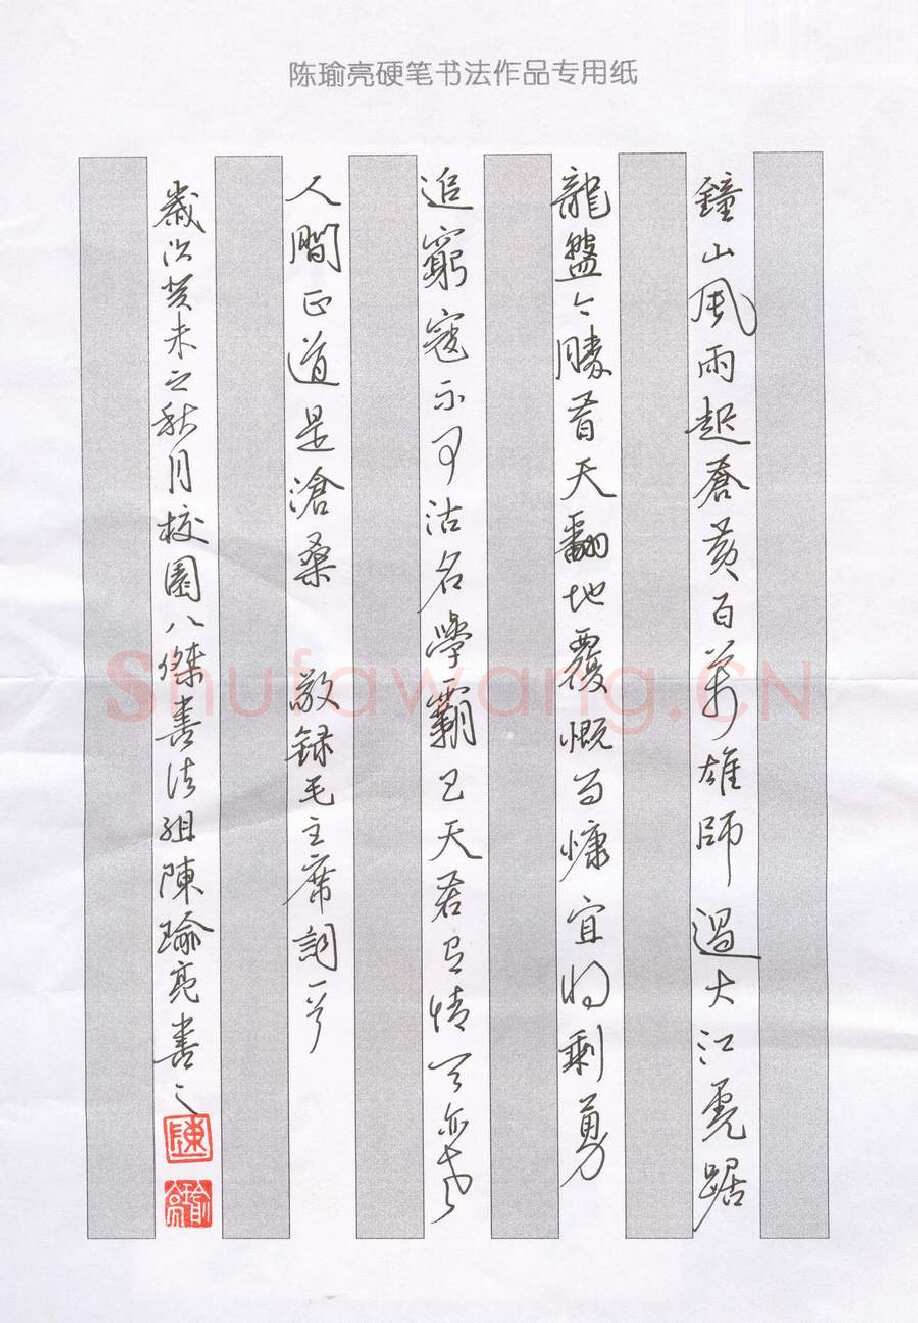 陈瑜亮硬笔书法作品专用纸
鐘山風雨起蒼黃百萬雄師過大江虎踞
龍盤今勝昔天翻地覆慨而慷宜將剩勇
追窮寇不可沽名學霸王天若有情天亦老
人間正道是滄桑 敬録毛主席詞一首
歲次癸未之秋月校園八傑書法組陳瑜亮書之
陳
瑜亮
Shufawang.CN